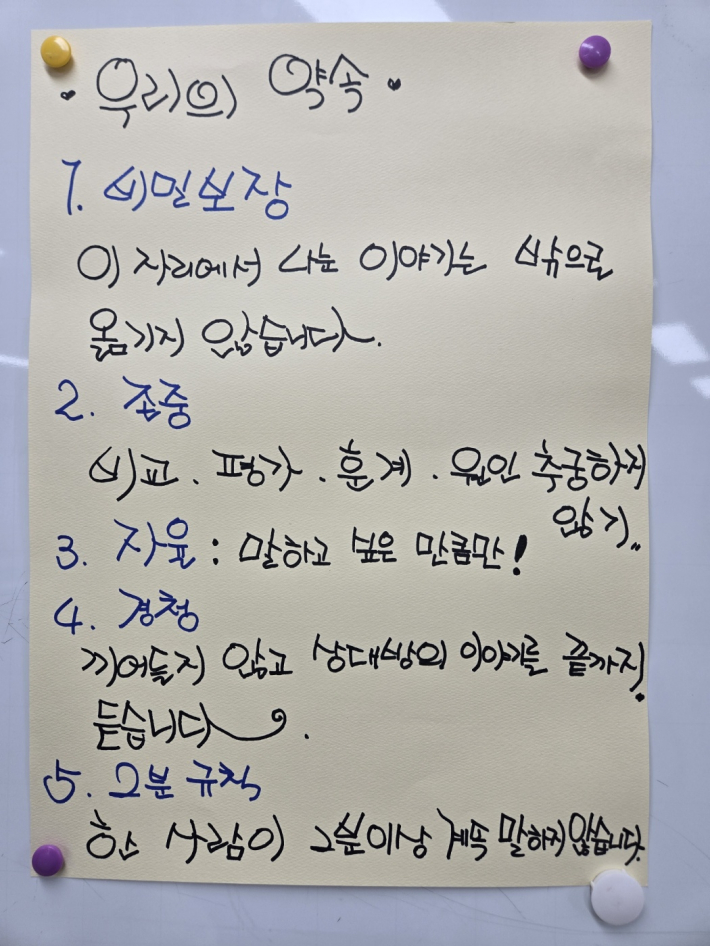 · 우리의 약속 ·
1. 비밀보장
이 자리에서 나눈 이야기는 밖으로
옮기지 않습니다.
2. 존중
비교 . 평가 . 훈계 . 원인 추궁하지
않기..
3. 자율 : 말하고 싶은 만큼만!
4. 경청
끼어들지 않고 상대방의 이야기를 끝까지
듣습니다.
5. 2분 규칙
한 사람이 2분이상 계속 말하지 않습니다.